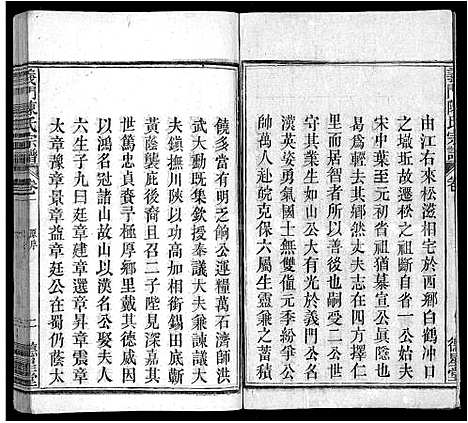 義門陳氏宗譜 卷
由江右來松滋相宅於西鄉白鶴冲口
之墈坵故遷松之祖斷自省一公始夫
宋末中葉至元初省一猶慕宣公抗
爲輕去其鄉然丈夫志在四方擇仁
里而居智者所以善後也嗣受二公世
其業生如山公大有光於義門公名
漢英姿勇氣國士無雙値元季群雄
帥萬人赴皖克保六屬生靈兼之蓄積
德星堂
饒多當有明王飭公運糧萬石濟師洪
武大動既集欽授奉議大夫兼諫議大
夫鎮撫川陝以功高加相銜錫田底蘄
黃蔭襲庇後裔且召二子陛見深嘉其
世篤忠貞養子極厚鄉里戴其德咸因
以鴻名冠諸山故山以漢名公娶夫人
六生子九曰廷章建章選章昇章震章
太章豫章景章益章廷公在蜀仍蔭太
義門陳氏宗譜 卷一
德星堂